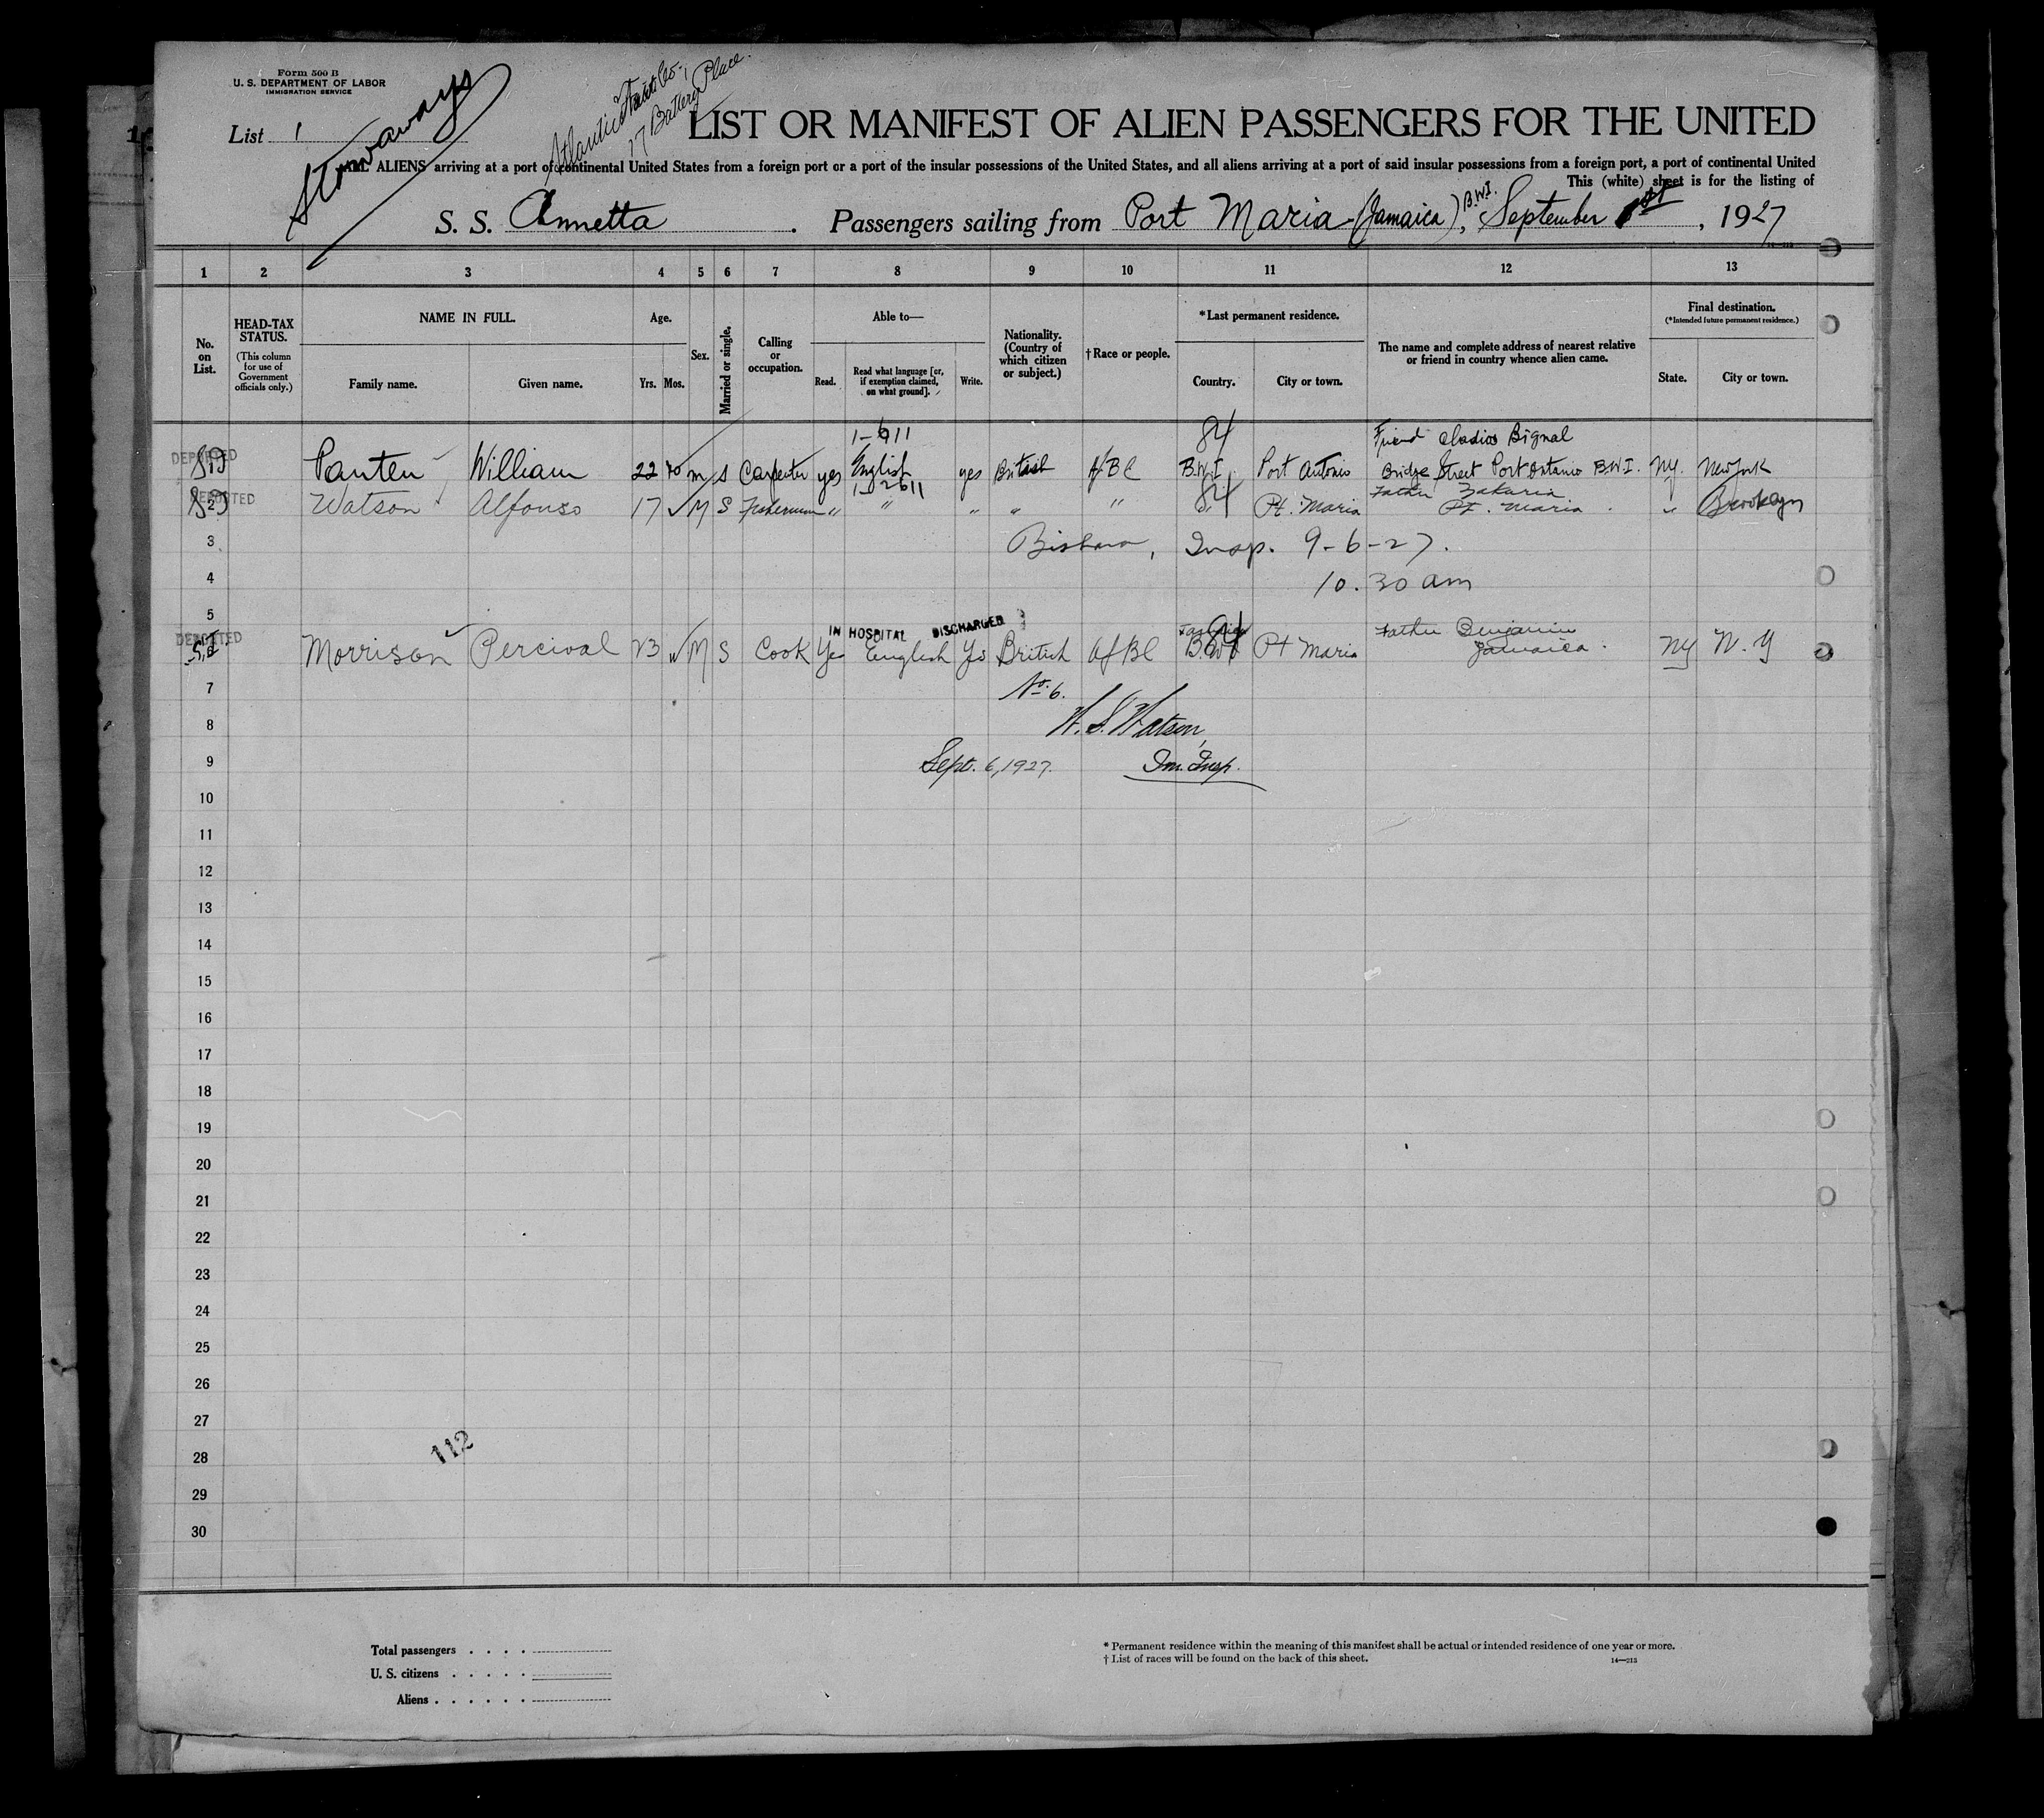 Form 500 B
U. S. DEPARTMENT OF LABOR
IMMIGRATION SERVICE
List 1
Stowaways
Atlantic Fruit Co.,
17 Battery Place.
LIST OR MANIFEST OF ALIEN PASSENGERS FOR THE UNITED
ALL ALIENS arriving at a port of continental United States from a foreign port or a port of the insular possessions of the United States, and all aliens arriving at a port of said insular possessions from a foreign port, a port of continental United
This (white) sheet is for the listing of
S. S. Annetta . Passengers sailing from Port Maria (Jamaica) B.W.I., September 1st, 1927
1 2 3 4 5 6 7 8 9 10 11 12 13
No. on List.
HEAD-TAX STATUS.
(This column for use of Government officials only.)
NAME IN FULL.
Family name. Given name.
Age.
Yrs. Mos.
Sex.
Married or single.
Calling or occupation.
Able to—
Read. Read what language [or, if exemption claimed, on what ground]. Write.
Nationality. (Country of which citizen or subject.)
†Race or people.
*Last permanent residence.
Country. City or town.
The name and complete address of nearest relative or friend in country whence alien came.
Final destination.
(*Intended future permanent residence.)
State. City or town.
84 Friend Bignal
DEPORTED Panten William 22 m S Carpenter yes English yes British Af Bl B.W.I. Port Antonio Bridge Street Port Antonio B.W.I. NY. New York
84 Father Zakaria
DEPORTED Watson Alfonso 17 M S Fisherman " " " " " " Pt. Maria Pt. Maria " Brooklyn
3 Bishara, Insp. 9-6-27.
4 10.30 am
5
IN HOSPITAL DISCHARGED
84 Father Benjamin
DEPORTED Morrison Percival 23 M S Cook Yes English Yes British Af Bl B.W.I Pt Maria Jamaica. NY N. Y
7 No. 6.
8 W. S. Watson,
9 Sept. 6, 1927. Im. Insp.
10
11
12
13
14
15
16
17
18
19
20
21
22
23
24
25
26
27
112
28
29
30
Total passengers
U. S. citizens
Aliens
* Permanent residence within the meaning of this manifest shall be actual or intended residence of one year or more.
† List of races will be found on the back of this sheet.
14—213